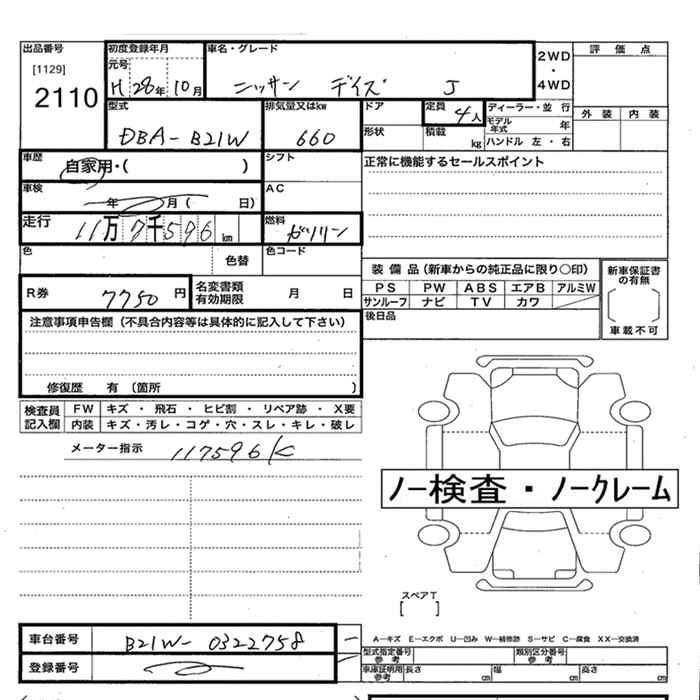 出品番号 初度登録年月 車名・グレード 2WD・4WD 評価点
[1129] 元号
2110 H 28年 10月 ニッサン デイズ J
型式 排気量又はkw ドア 定員 4人 ディーラー・並行 外装 内装
DBA-B21W 660 形状 積載 kg モデル年式 年 ハンドル 左・右
車歴 自家用・( ) シフト 正常に機能するセールスポイント
車検 年 月 ( 日) AC
走行 11万7千596km 燃料 ガソリン
色 色替 色コード
装備品(新車からの純正品に限り○印) 新車保証書の有無
R券 7750円 名変書類有効期限 月 日 PS PW ABS エアB アルミW
サンルーフ ナビ TV カワ 車載不可
注意事項申告欄(不具合内容等は具体的に記入して下さい) 後日品
修復歴 有 (箇所 )
検査員記入欄 FW キズ・飛石・ヒビ割・リペア跡・X要
内装 キズ・汚レ・コゲ・穴・スレ・キレ・破レ
メーター指示 117596K
ノー検査・ノークレーム
スペアT
[ ]
車台番号 B21W-0322758
A-キズ E-エクボ U-凹み W-補修跡 S-サビ C-腐食 XX-交換済
登録番号 型式指定番号 参考 類別区分番号 参考
車庫証明用 参考 長さ cm 幅 cm 高さ cm